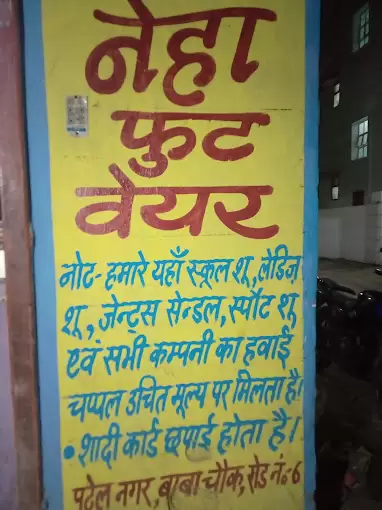 नेहा
फुट
वैयर
नोट- हमारे यहाँ स्कूल शू, लेडिज
शू, जेन्ट्स सेन्डल, स्पौट शू
एवं सभी कम्पनी का हवाई
चप्पल उचित मूल्य पर मिलता है।
• शादी कार्ड छपाई होता है।
पटेल नगर, बाबा चौक, रोड नं०-6